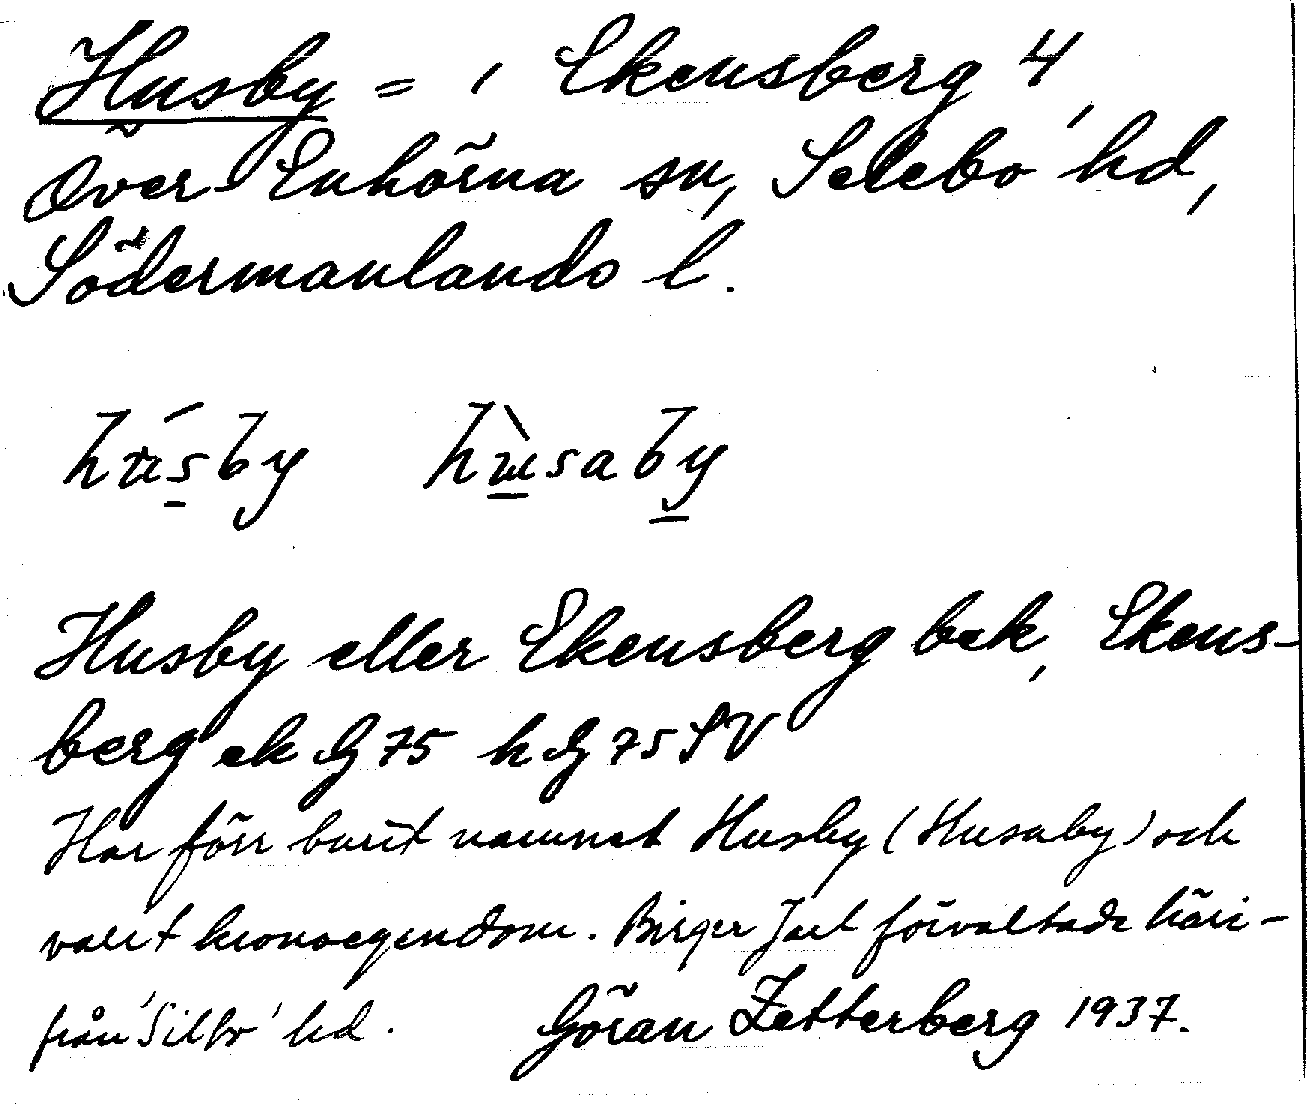 Husby = Ekensberg 4,
Över-Enhörna sn, Selebo hd,
Södermanlands l.
húsby hùsaby
Husby eller Ekensberg bek, Ekens-
berg ek G 75 h G 75 SV
Har förr burit namnet Husby (Husaby) och
varit kronoegendom. Birger Jarl förvaltade häri-
från hd. Göran Zetterberg 1937.